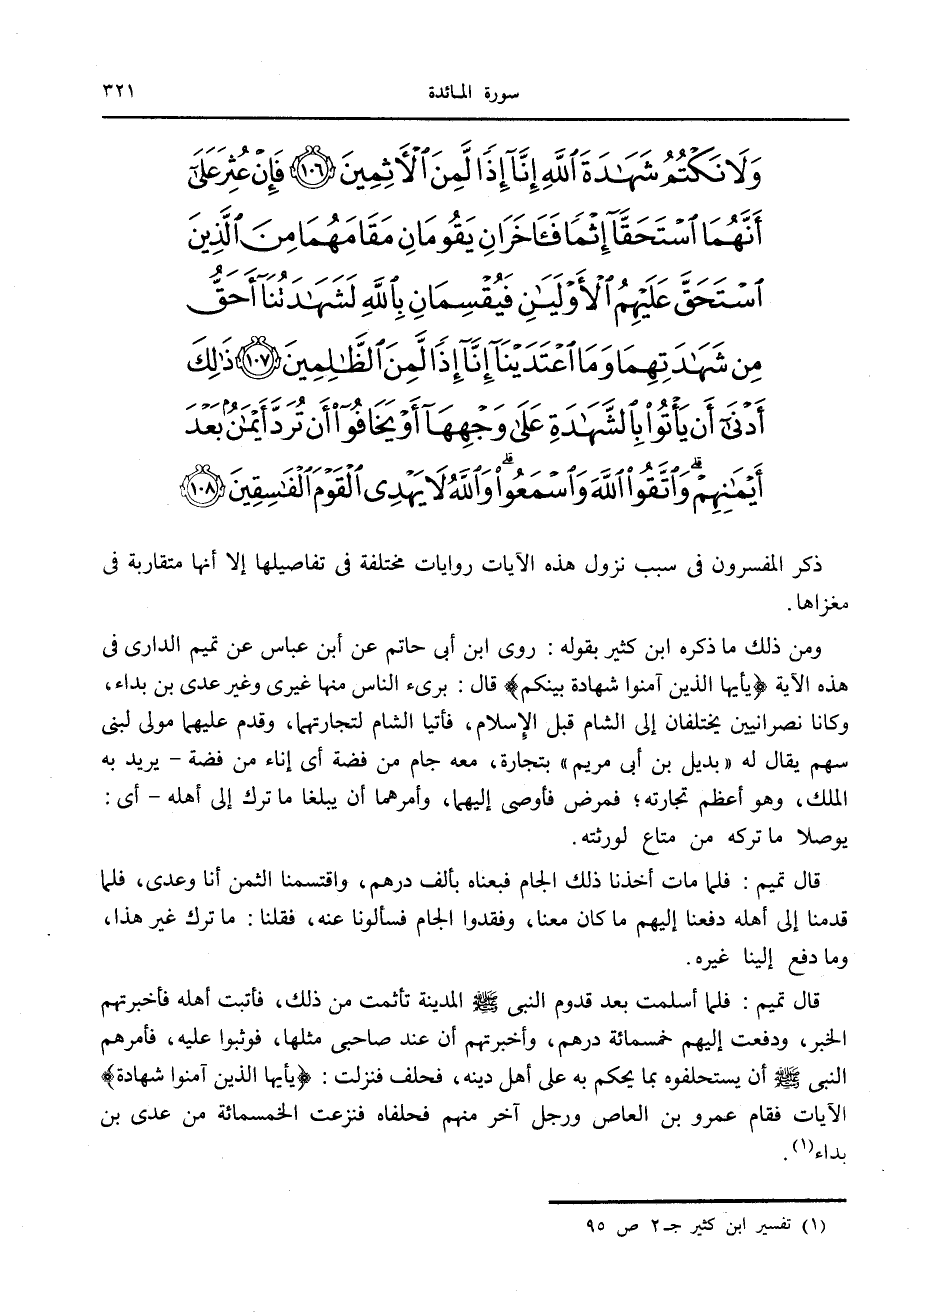 سورة المائدة ٣٢١
وَلَا نَكْتُمُ شَهَٰدَةَ ٱللَّهِ إِنَّآ إِذًا لَّمِنَ ٱلْأَثِمِينَ ١٠٦ فَإِنْ عُثِرَ عَلَىٰٓ
أَنَّهُمَا ٱسْتَحَقَّآ إِثْمًا فَـَٔاخَرَانِ يَقُومَانِ مَقَامَهُمَا مِنَ ٱلَّذِينَ
ٱسْتَحَقَّ عَلَيْهِمُ ٱلْأَوْلَيَٰنِ فَيُقْسِمَانِ بِٱللَّهِ لَشَهَٰدَتُنَآ أَحَقُّ
مِن شَهَٰدَتِهِمَا وَمَا ٱعْتَدَيْنَآ إِنَّآ إِذًا لَّمِنَ ٱلظَّٰلِمِينَ ١٠٧ ذَٰلِكَ
أَدْنَىٰٓ أَن يَأْتُوا۟ بِٱلشَّهَٰدَةِ عَلَىٰ وَجْهِهَآ أَوْ يَخَافُوٓا۟ أَن تُرَدَّ أَيْمَٰنٌۢ بَعْدَ
أَيْمَٰنِهِمْ ۗ وَٱتَّقُوا۟ ٱللَّهَ وَٱسْمَعُوا۟ ۗ وَٱللَّهُ لَا يَهْدِى ٱلْقَوْمَ ٱلْفَٰسِقِينَ ١٠٨
ذكر المفسرون فى سبب نزول هذه الآيات روايات مختلفة فى تفاصيلها إلا أنها متقاربة فى
مغزاها.
ومن ذلك ما ذكره ابن كثير بقوله : روى ابن أبى حاتم عن أبن عباس عن تميم الدارى فى
هذه الآية ﴿يأيها الذين آمنوا شهادة بينكم﴾ قال : برىء الناس منها غيرى وغير عدى بن بداء،
وكانا نصرانيين يختلفان إلى الشام قبل الإسلام، فأتيا الشام لتجارتهما، وقدم عليهما مولى لبنى
سهم يقال له «بديل بن أبى مريم» بتجارة، معه جام من فضة أى إناء من فضة – يريد به
الملك، وهو أعظم تجارته؛ فمرض فأوصى إليهما، وأمرهما أن يبلغا ما ترك إلى أهله – أى :
يوصلا ما تركه من متاع لورثته.
قال تميم : فلما مات أخذنا ذلك الجام فبعناه بألف درهم، واقتسمنا الثمن أنا وعدى، فلما
قدمنا إلى أهله دفعنا إليهم ما كان معنا، وفقدوا الجام فسألونا عنه، فقلنا : ما ترك غير هذا،
وما دفع إلينا غيره.
قال تميم : فلما أسلمت بعد قدوم النبى ﷺ المدينة تأثمت من ذلك، فأتبت أهله فأخبرتهم
الخبر، ودفعت إليهم خمسمائة درهم، وأخبرتهم أن عند صاحبى مثلها، فوثبوا عليه، فأمرهم
النبى ﷺ أن يستحلفوه بما يحكم به على أهل دينه، فحلف فنزلت : ﴿يأيها الذين آمنوا شهادة﴾
الآيات فقام عمرو بن العاص ورجل آخر منهم فحلفاه فنزعت الخمسمائة من عدى بن
بداء(١).
(١) تفسير ابن كثير جـ٢ ص ٩٥